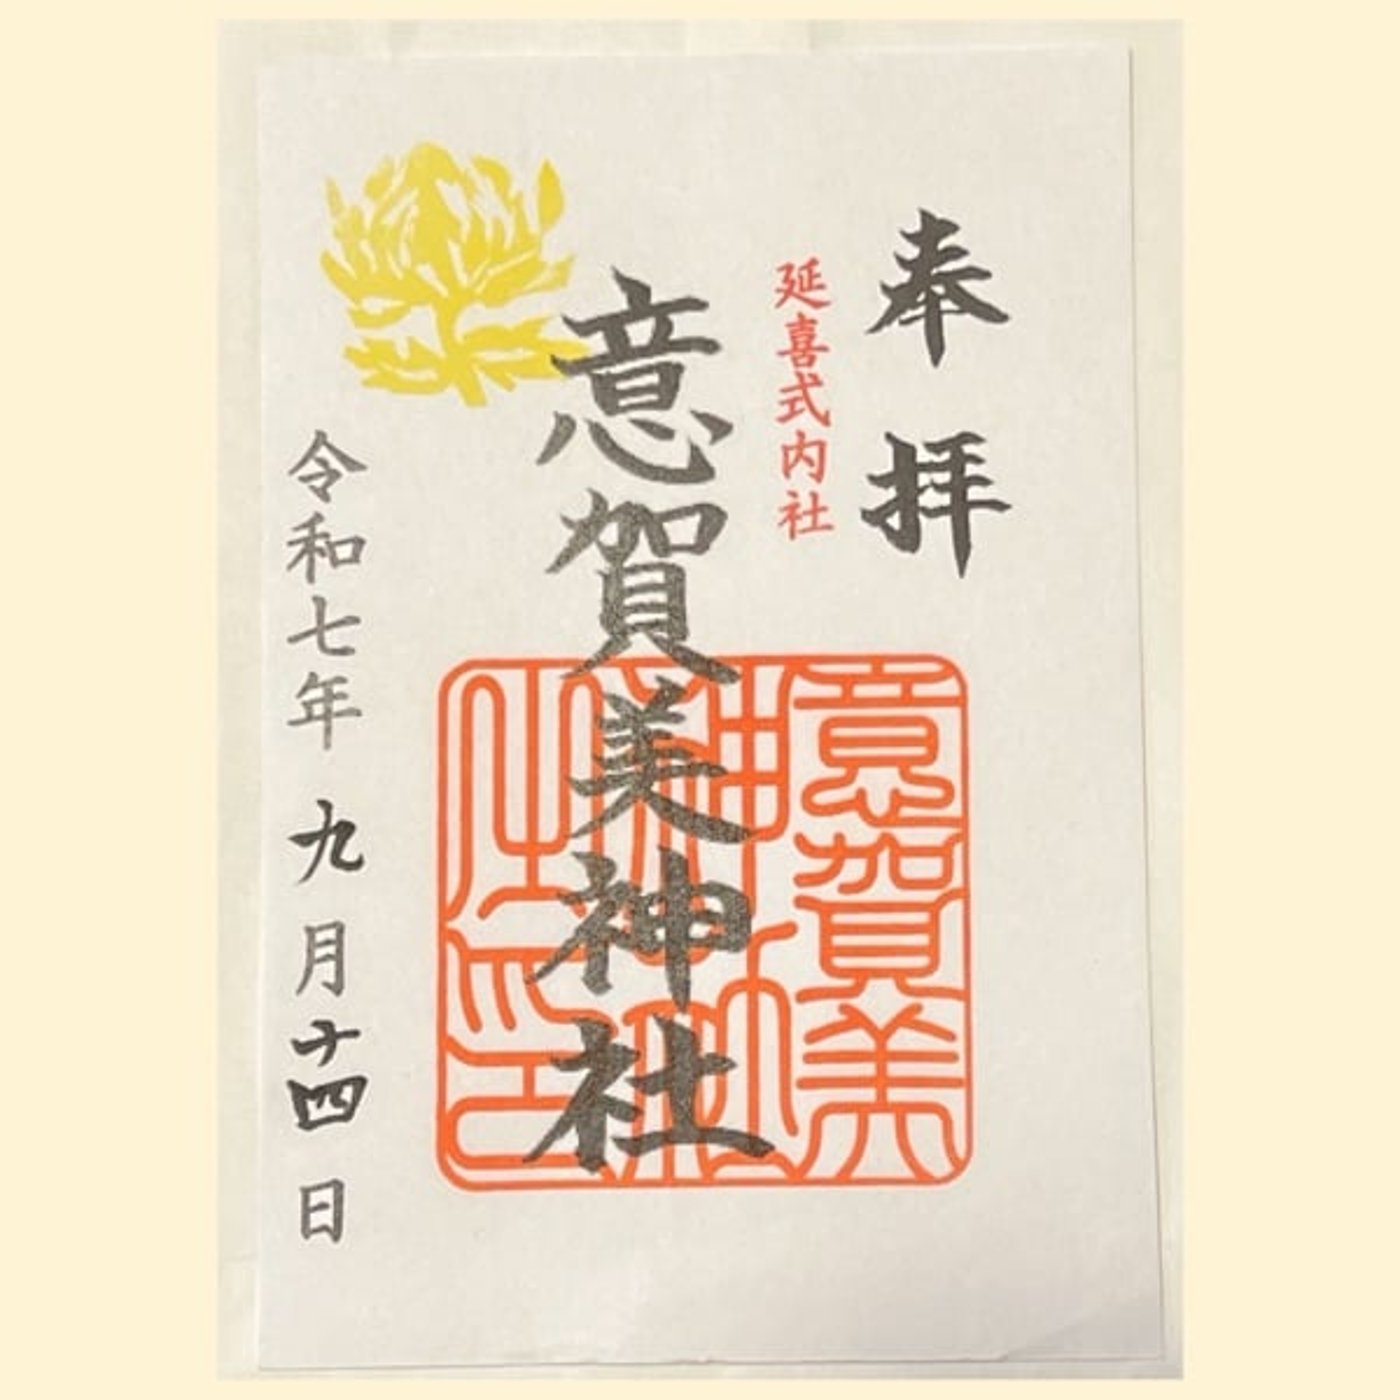 奉拝
延喜式内社
意賀美神社
意賀美
神社
之印
令和七年九月十四日